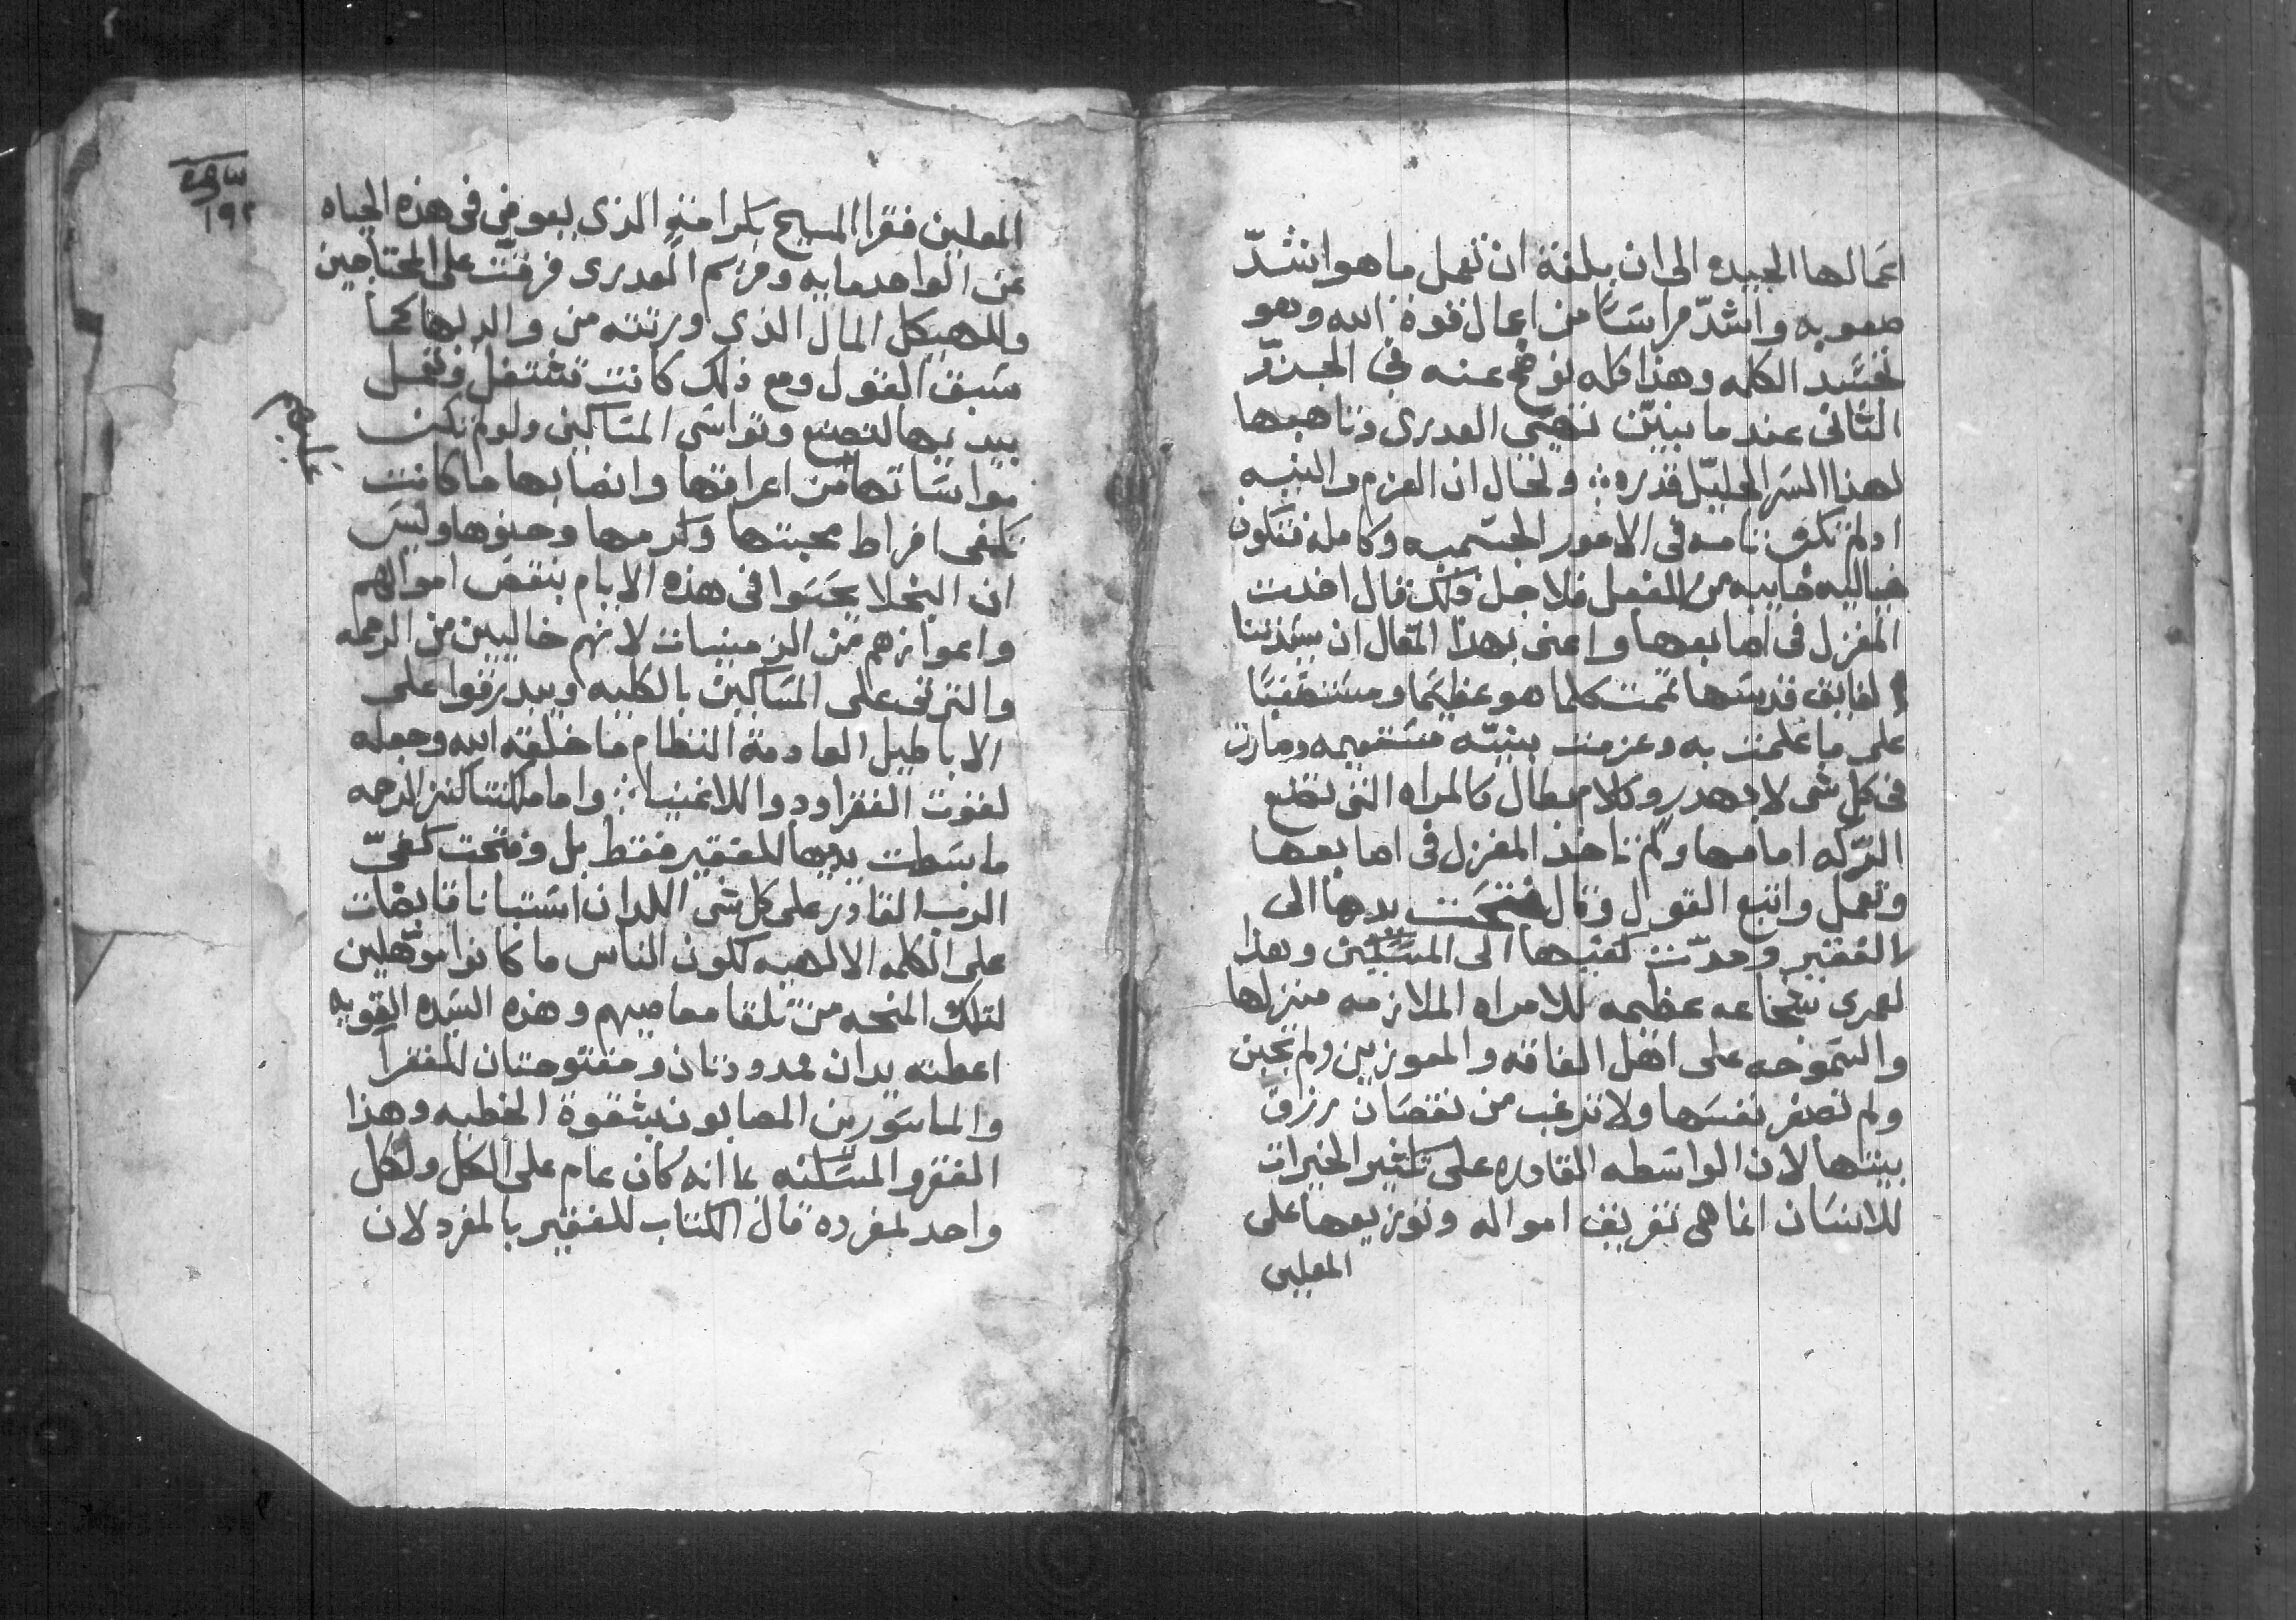 اعمالها الجيده الى ان بلغة ان تعمل ما هو اشدّ
صعوبه واشدّ مراسًا من اعمال قوة الله وهو
تجسّد الكلمه وهذا كله نوضح عنه في الجزوّ
الثانى عند ما نبيّن تهيّي العدرى وتاهبها
لهذا السر الجليّل قدره ⁘ ولحال ان العزم والنيه
اد لم تكن تامه فى الامور الجسميه وكامله فتكون
خياليه خاييه من الفعل فلاجل ذلك قال اخدت
المغزل فى اصابعها واعنى بهذا المقال ان سيّدتنا
لفايق قدسها تممت كلما هو عظيمًا ومستصعبًا
على ما علمت به وعزمت بنيّه مستقيمه وصارت
فى كل شى لا بهدر وكلام بطال كالمراه التى تضع
العرّكه امامها ولم تاخذ المغزل فى اصابعها
وتعمل واتبع القول وقال فتحت يدها الى
الفقير ومدّت كفيها الى المسكين وهذا
لعمرى شجاعه عظيمه للامراه الملازمه منزلها
والسموحه على اهل الفاقه والمعوزين ولم تجبن
ولم تصغر نفسها ولا ترغب من نقصان رزق
بيتها لان الواسطه القادره على تكثير الخيرات
للانسان انما هى تفريق امواله وتوزيعها على
المعلين
١٩٢
المعلين فقرا المسيح بكرامته الذى يعوض فى هذه الحياه
عن الواحد مايه ومريم العدرى فرقتّ على المحتاجين
وللهيكل المال الذي ورتته من والديها كما
سبق القول ومع ذلك كانت تشتغل وتعمل
بيديها لتصنع وتواسى المساكين ولو لم تكن
مواساتها من اعراقها واتعابها ما كانت
تكفى افراط محبتها وكرمها وحنوها وليس
ان البخلا يحسوا فى هذه الايام بنقص اموالهم
واعوازهم من الزمنيات لانهم خاليين من الرحمه
والترفى على المساكين بالكليه ويبدرقوا على
الاباطيل العادمة النظام ما خلقه الله وجعله
لقوت الفقرا ودوا للاغنيا ⁘ واما ملكتنا كنز الرحمه
ما بسطت يديها للفقير فقط بل وفتحت كفىّ
الرب القادر على كل شى اللدان استبانا قابضات
على الكلمه الالهيه لكون الناس ما كانوا موهلين
لتلك المنحه من تلقا معاصيهم وهذه السيّده القويه
اعطته يدان ممدودتان ومفتوحتان للفقرا
والماسورين المصابون بشقوة الخطيه وهذا
الفقر والمسكنه بما انه كان عام على الكل ولكل
واحد بمفرده قال الكتاب للفقير بالمفرد لان